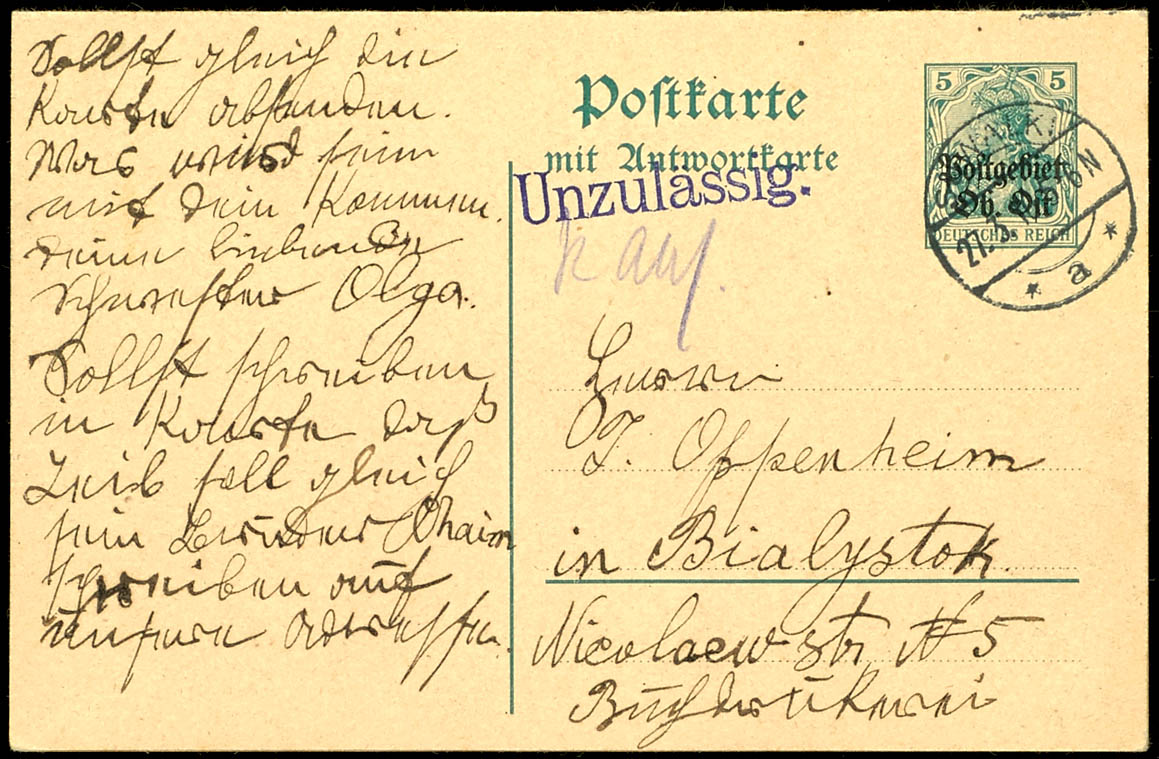 Sollst gleich die
Karte absenden.
Was wird sein
mit dein Kommen.
deine liebende
Schwester Olga.
Sollst schreiben
in Karte daß
Leib soll gleich
sein Bruder Chaim
schreiben auf
unsere Adresse.
Postkarte
mit Antwortkarte
Unzulässig.
5 5
Postgebiet
Ob. Ost
DEUTSCHES REICH
SUWALKI
27.5.
N
* a *
Herrn
J. Oppenheim
in Bialystok.
Nicolaew str. # 5
Buchdrukerei